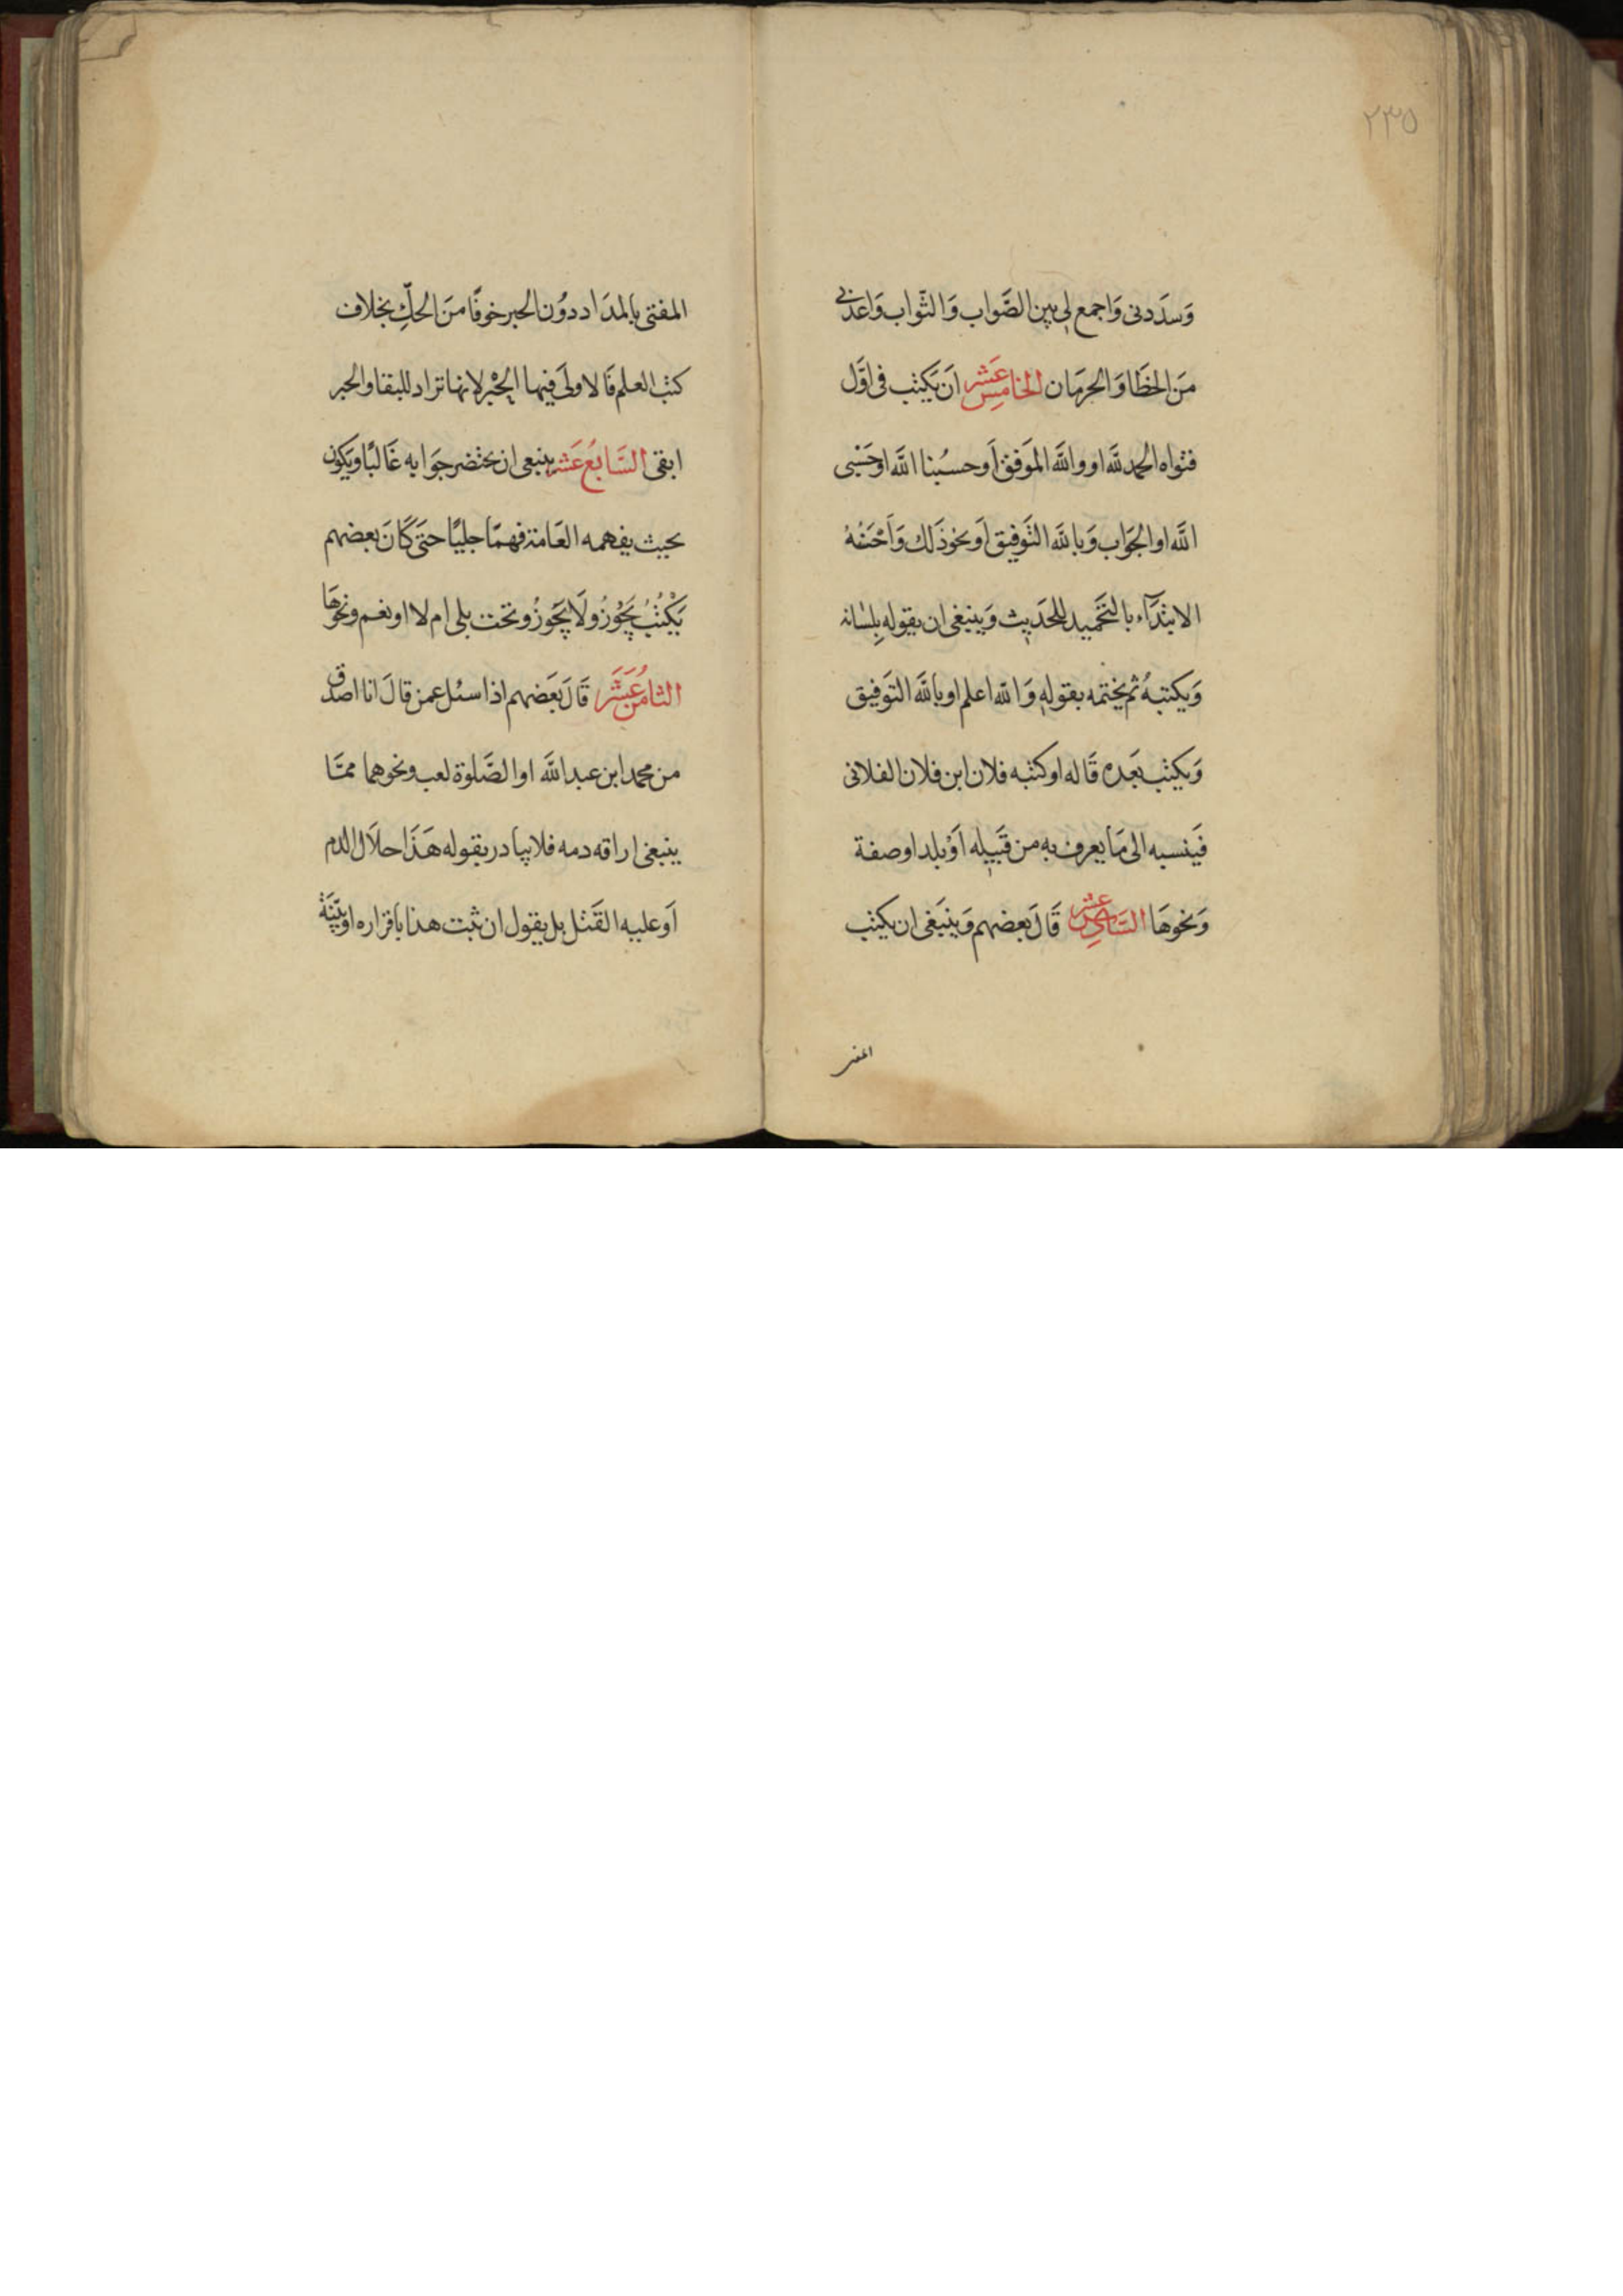 ٢٣٥
وَسدَدنى وَاجمع لى بين الصَّواب وَالثّواب وَاعذنى
مَن الخطَا وَالحرمَان الخامِس عَشر اَن يَكتب فى اوَّل
فتواه الحمد لله او والله الموَفق اَو حسبُنا الله او حَسْبى
الله او الجوَاب وَبالله التَّوفيق اَو نحو ذَلك وَاَحْسَنُهُ
الابتدَآء بالتَحميد للحَديث وَينبغى ان يقوله بِلسَانه
وَيكتبهُ ثم يختمه بقوله وَالله اعلم او بالله التوَفيق
وَيكتب بعَده قَاله او كتبه فلان ابن فلان الفلانى
فَينسبه الى مَا يعرف به من قَبيله اَوْ بلد او صفة
وَنحوهَا السَّادِس عَشر قَالَ بعضهم وَينبَغى ان يكتب
المفتى
المفتى بالمدَاد دوُن الحبر خوفًا منَ الحكِّ بخلاف
كتب العلم فَالاولَى فيها الحِبْر لانها تراد للبقا والحبر
ابقى السَّابعُ عَشر ينبغى ان يختصر جوَابه غَالبًا ويَكون
بحيث يفهمه العَامة فهمًا جليًا حتىَ كَانَ بعضهم
يَكْتُبُ يَجُوْزُ ولَا يَجوزُ وتحت بلى ام لا او نعم ونحوهَا
الثامُن عَشَر قَالَ بعَضهم اذا سئل عمن قالَ انا اصدق
من محمد ابن عبد الله او الصَّلوة لعب ونحوهما ممَّا
ينبغى اراقه دمه فلا يبادر بقوله هَذَا حلَال الدم
اَو عليه القَتل بل يقول ان ثبت هذا باقراره او بيّنَة